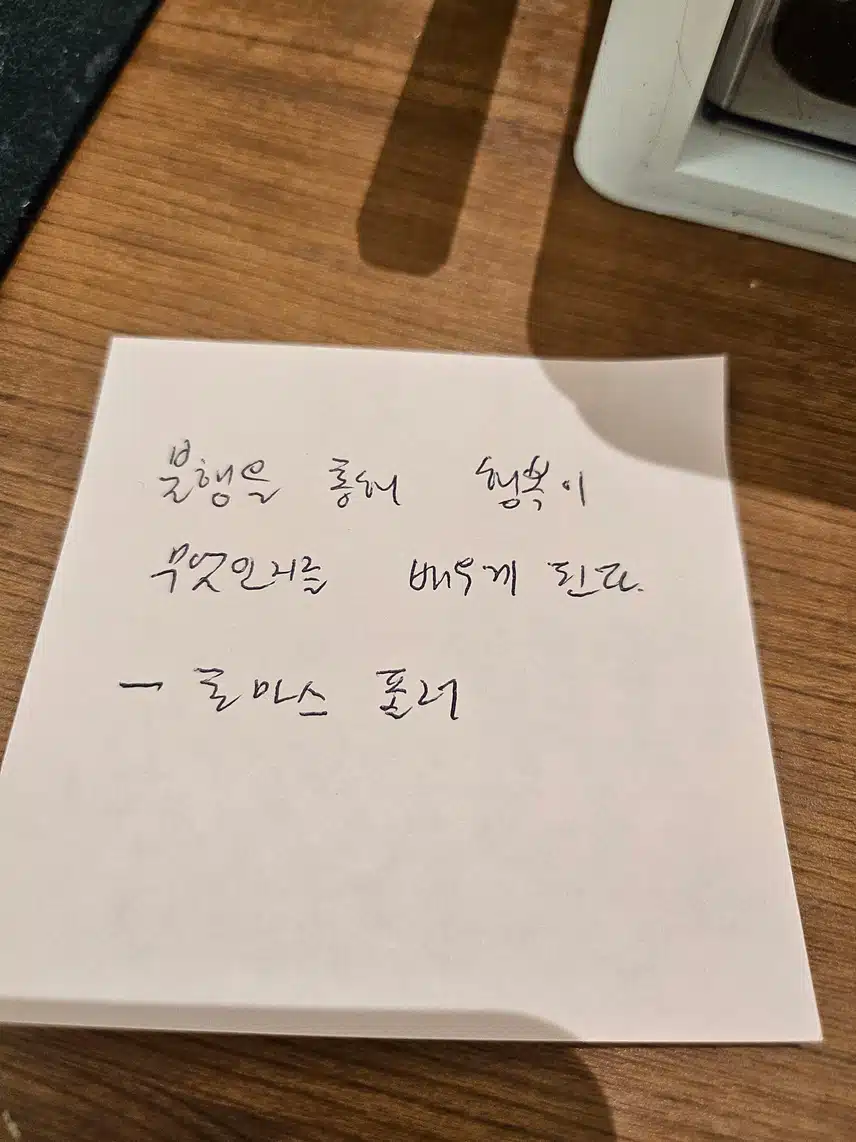 불행을 통해 행복이
무엇인지를 배우게 된다.
- 토마스 풀러